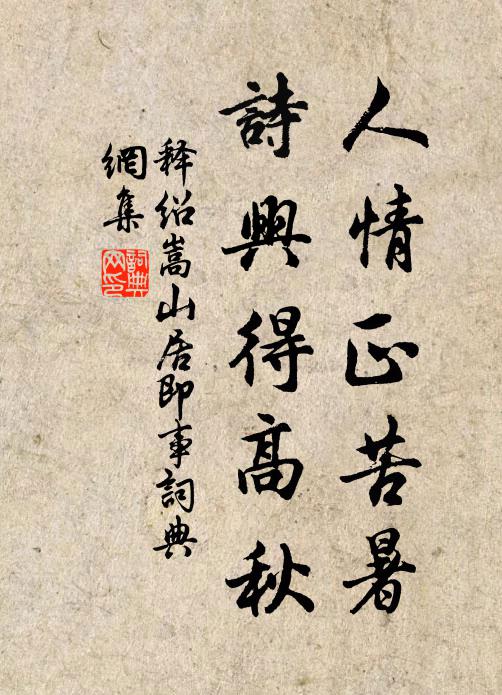 人情正苦暑
詩興得高秋
释绍嵩山居即事詞典
網集
詞典
网印